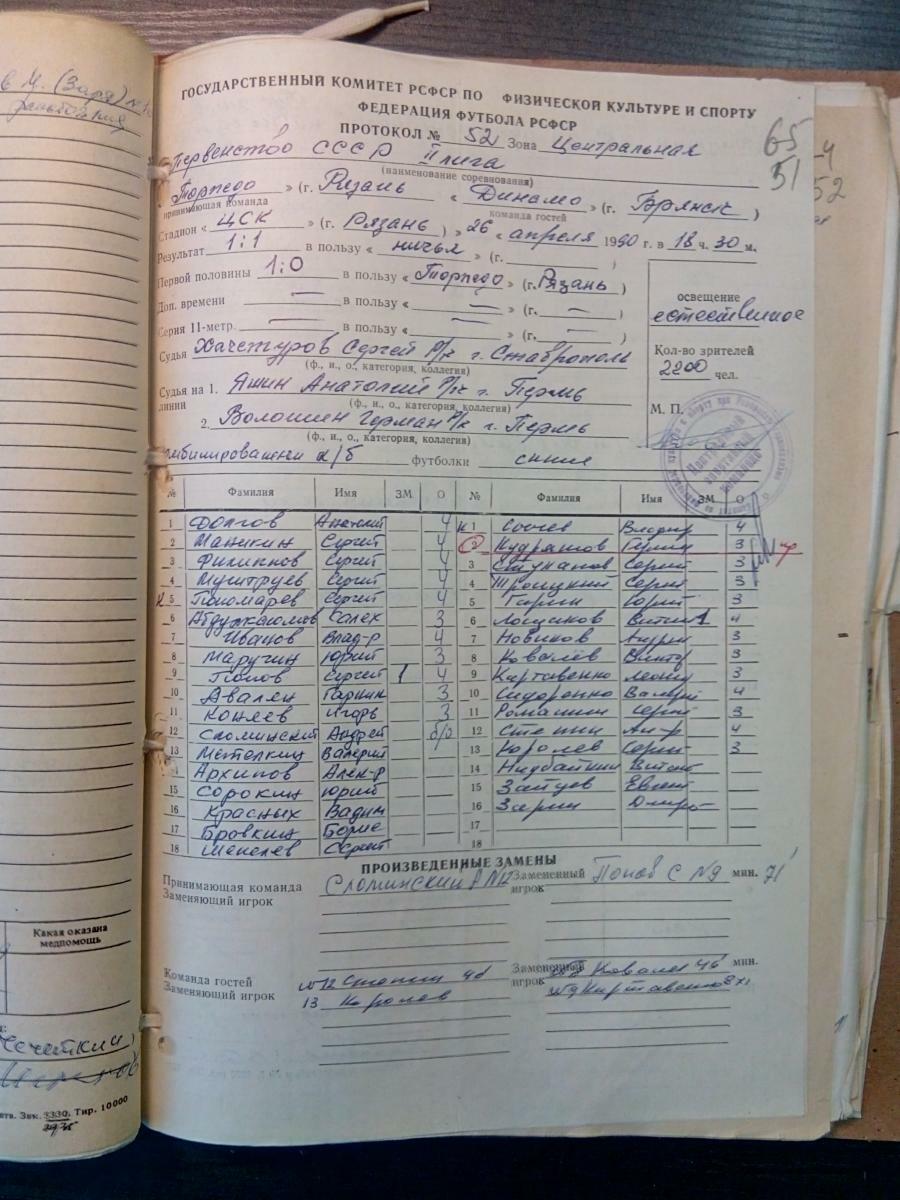 в М. (Заря) №
ГОСУДАРСТВЕННЫЙ КОМИТЕТ РСФСР ПО ФИЗИЧЕСКОЙ КУЛЬТУРЕ И СПОРТУ
ФЕДЕРАЦИЯ ФУТБОЛА РСФСР
65
51
52
ПРОТОКОЛ № 52 Зона Центральная
Первенство СССР II лига
(наименование соревнования)
Торпедо » (г. Рязань « Динамо » (г. Брянск )
принимающая команда команда гостей
Стадион « ЦСК » (г. Рязань ) » 26 « апреля 1990 г. в 18 ч. 30 м.
Результат 1:1 в пользу « ничья » (г. )
Первой половины 1:0 в пользу « Торпедо » (г. Рязань )
Доп. времени — в пользу « — » (г. — )
Серия 11-метр. — в пользу « — » (г. — )
освещение
естественное
Кол-во зрителей
2200 чел.
М. П.
Судья Хачатуров Сергей Р/к г. Ставрополь
(ф., и., о., категория, коллегия)
Судья на 1. Яшин Анатолий Р/к г. Пермь
линии (ф., и., о., категория, коллегия)
2. Волошин Герман Р/к г. Пермь
(ф., и., о., категория, коллегия)
к/б футболки синие
№ Фамилия Имя ЗМ О № Фамилия Имя ЗМ О
1 Долгов Анатолий 4 К 1 Владир 4
2 Маникин Сергей 4 2 Кудряшов 3
3 Филиппов Сергей 4 3 Ступаков Сергей 3
4 Муштруев Сергей 4 4 Троицкий Сергей 3
К 5 Пономарев Сергей 4 5 Гарин Юрий 3
6 Салех 3 6 Лощаков 1 4
7 Иванов Влад-р 4 7 Новиков Андрей 3
8 Маручин Юрий 3 8 Ковалёв Виктор 3
9 Попов Сергей 1 4 9 Картавенко Леонид 3
10 Авалян Гарник 3 10 Сидоренко Валерий 4
11 Коняев Игорь 3 11 Романин Сергей 3
12 Сломинский Андрей б/о 12 Степин 4
13 Метелкин Валерий 13 Королев Сергей 3
Архипов Алек-р 14
15 Сорокин Юрий 15 Зайцев Евгений
16 Красных Вадим 16 Зарин Дмитр
17 Бровкин Борис 17
18 Менелев Сергей 18
ПРОИЗВЕДЕННЫЕ ЗАМЕНЫ
Принимающая команда Сломинский А №12 Замененный Попов С №9 мин. 71'
Заменяющий игрок игрок
Команда гостей №12 Степин 46 Замененный Ковалев 46' мин.
Заменяющий игрок 13 Королев игрок №9 Картавенко
Какая оказана
медпомощь
Зак. 3330. Тир. 10000